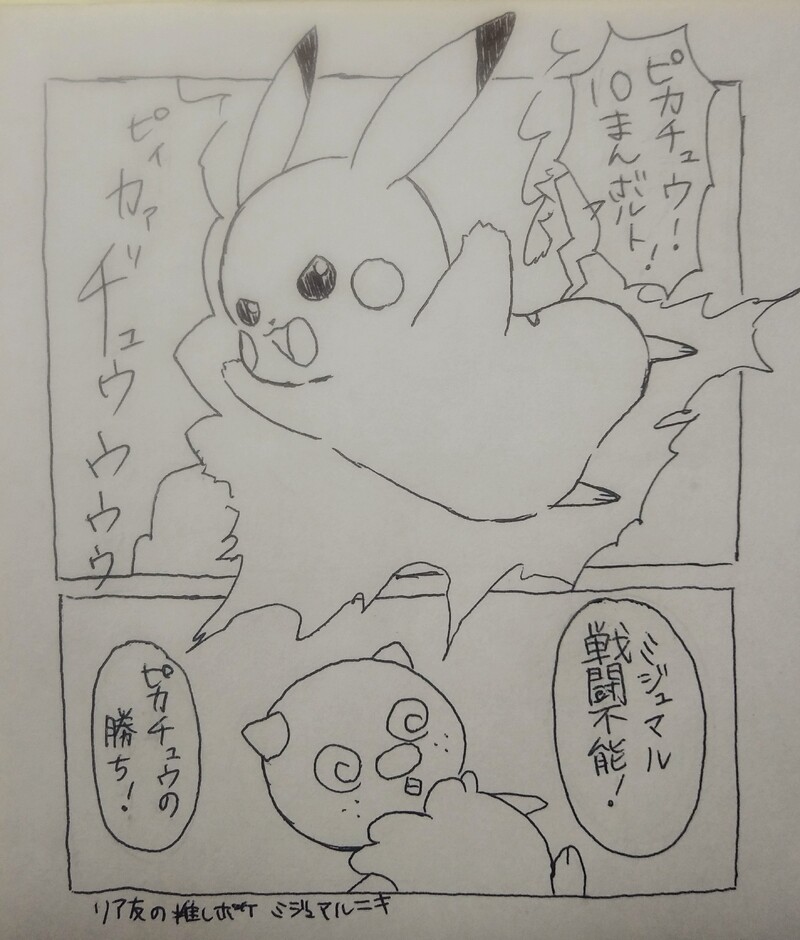 ピカチュウ!
10まんボルト!
ピィカァヂュウゥゥゥ
ミジュマル
戦闘不能!
ピカチュウの
勝ち!
リア友の推しポケ ミジュマルニキ